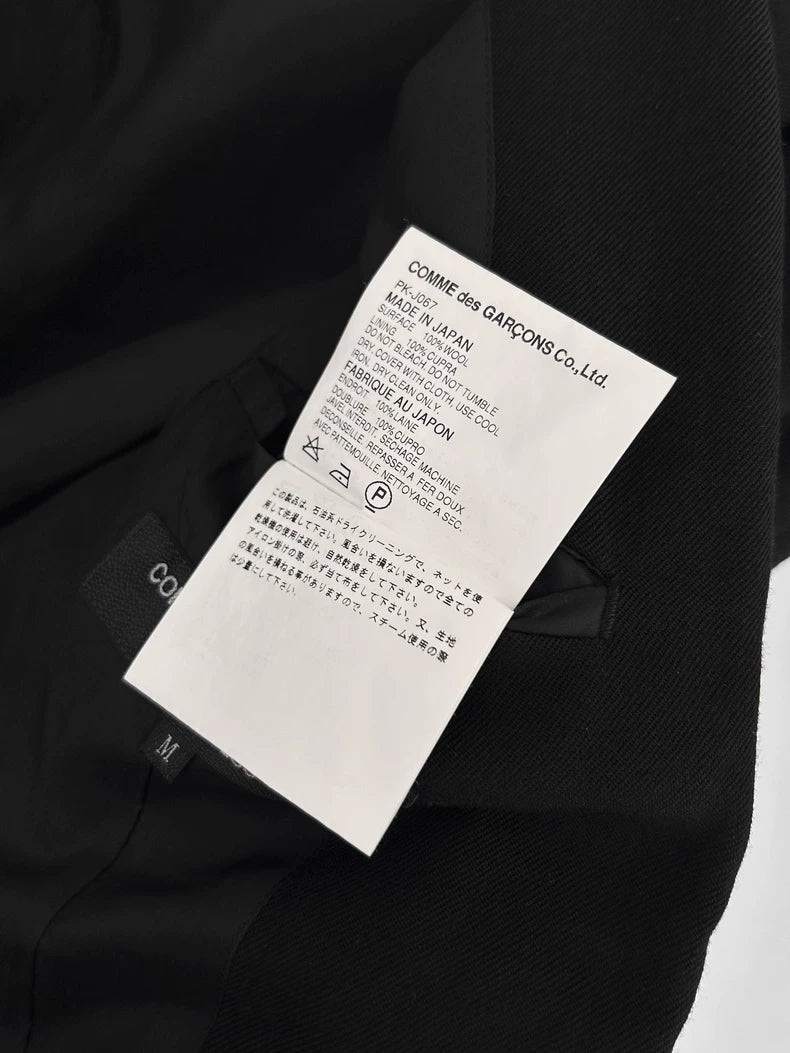 COMME des GARÇONS Co., Ltd.
PK-J067
MADE IN JAPAN
SURFACE 100%WOOL
LINING 100%CUPRA
DO NOT BLEACH, DO NOT TUMBLE
DRY, COVER WITH CLOTH, USE COOL
IRON. DRY CLEAN ONLY.
FABRIQUE AU JAPON
ENDROIT 100%LAINE
DOUBLURE 100%CUPRO
JAVEL INTERDIT, SECHAGE MACHINE
DECONSEILLE. REPASSER A FER DOUX
AVEC PATTEMOUILLE NETTOYAGE A SEC.
P
この製品は、石油系ドライクリーニングで、ネットを使
用して洗濯して下さい。風合いを損ないますので全ての
乾燥機の使用は避け、自然乾燥をして下さい。
アイロン掛けの際、必ず当て布をして下さい。又、生地
の風合いを損ねる事がありますので、スチーム使用の際
は少量にして下さい。
CO
M